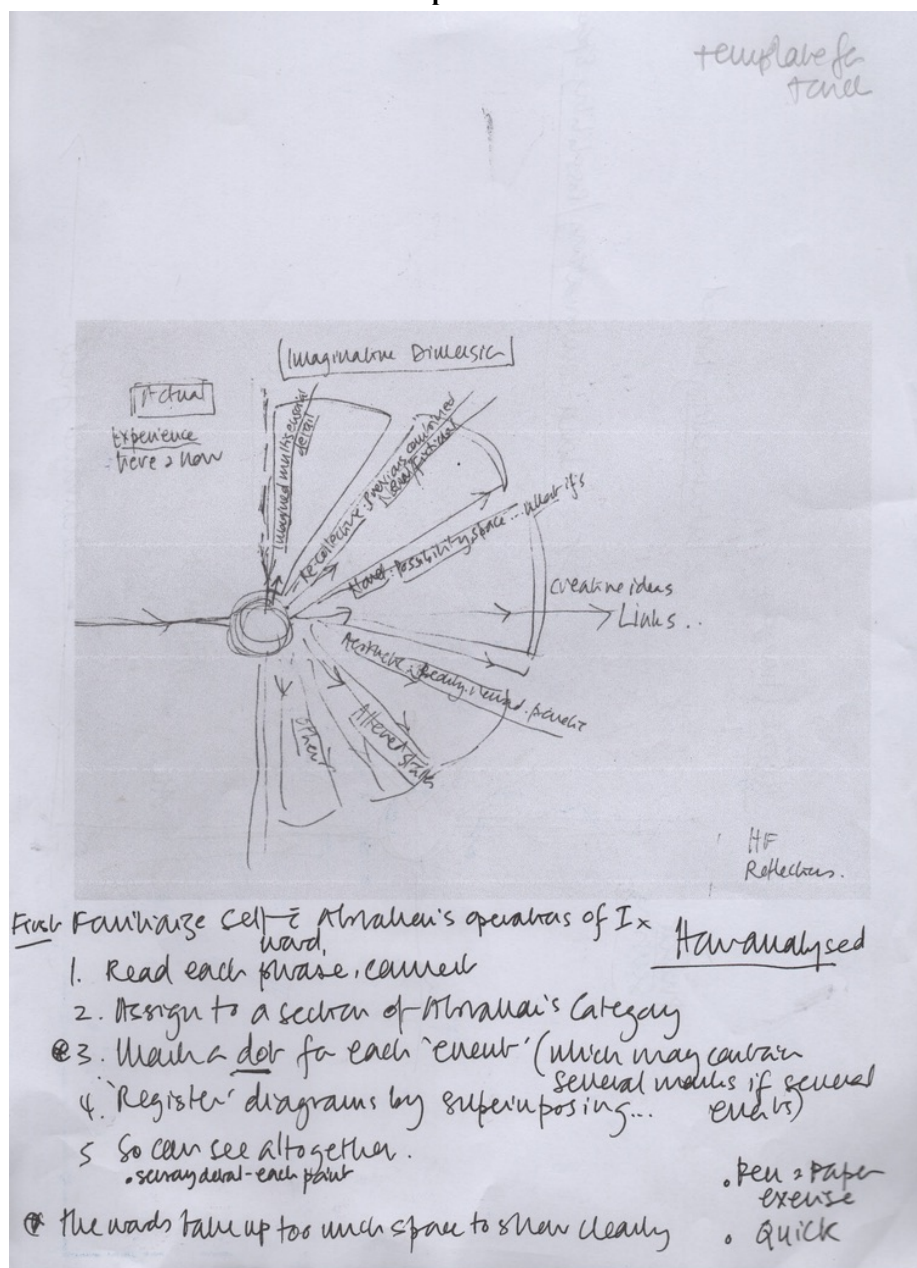 template for
[Imaginative Dimension]
Actual
Experience
here & now
Imagined multisensorial
detail
Re-collective: previous combined
Novel: possibility space... what if's
creative ideas
Links..
Aesthetic: Beauty
Altered states
Other
HF
Reflections.
First Familiarize self Abraham's operations of Ix
How analysed
word,
1. Read each phrase, comment
2. Assign to a section of Abraham's Category
3. Mark a dot for each 'event' (which may contain
several marks if several
events)
4. 'Register' diagrams by superimposing...
5 So can see altogether.
each point
• Pen & Paper
exercise
• Quick
The words take up too much space to show clearly